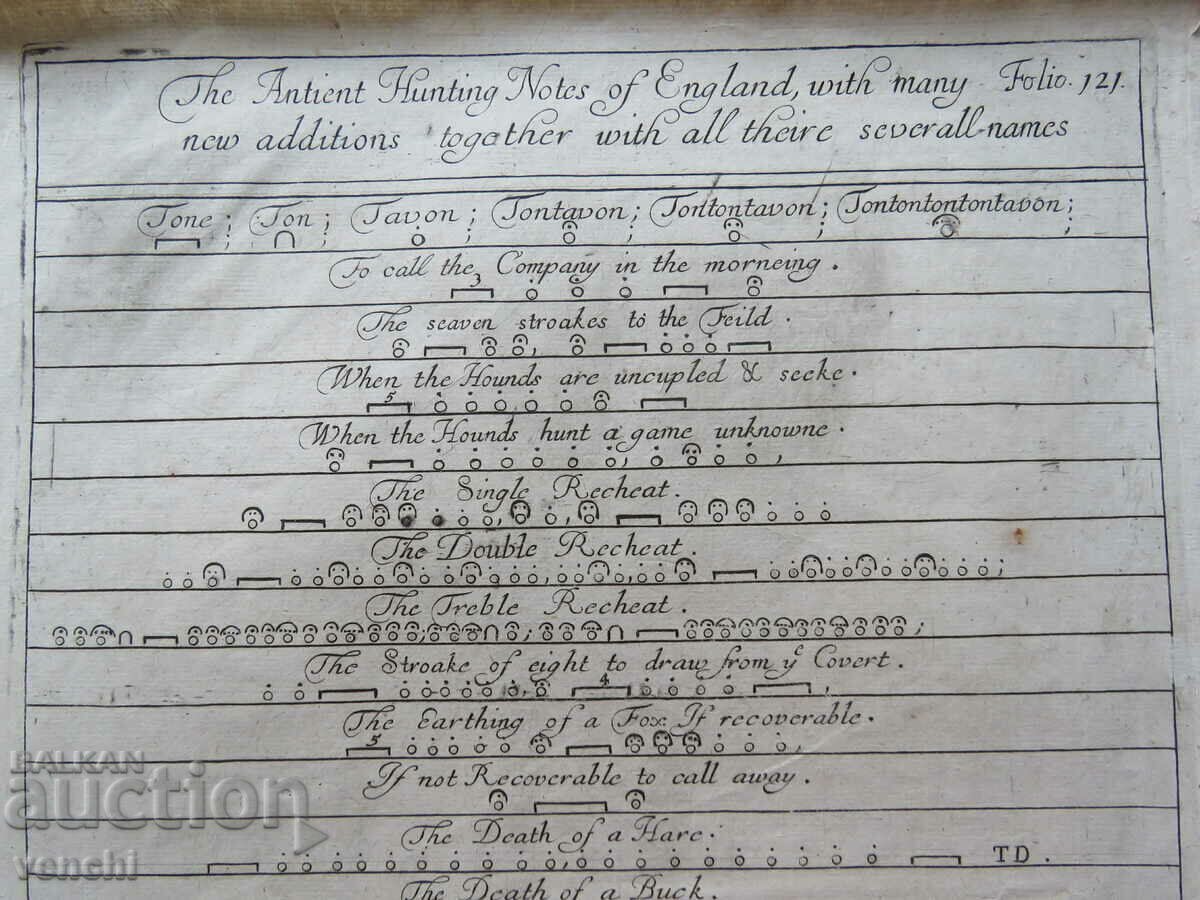 The Antient Hunting Notes of England, with many Folio. 121.
new additions together with all theire severall names
Tone; Ton; Tavon; Tontavon; Tontontavon; Tontontontontavon;
To call the Company in the morneing.
3
The seaven stroakes to the Feild.
When the Hounds are uncupled & seeke.
5
When the Hounds hunt a game unknowne.
The Single Recheat.
The Double Recheat.
The Treble Recheat.
The Stroake of eight to draw from yᵉ Covert.
4
The Earthing of a Fox If recoverable.
5
If not Recoverable to call away.
The Death of a Hare.
TD.
The Death of a Buck.
BALKAN
auction
venchi